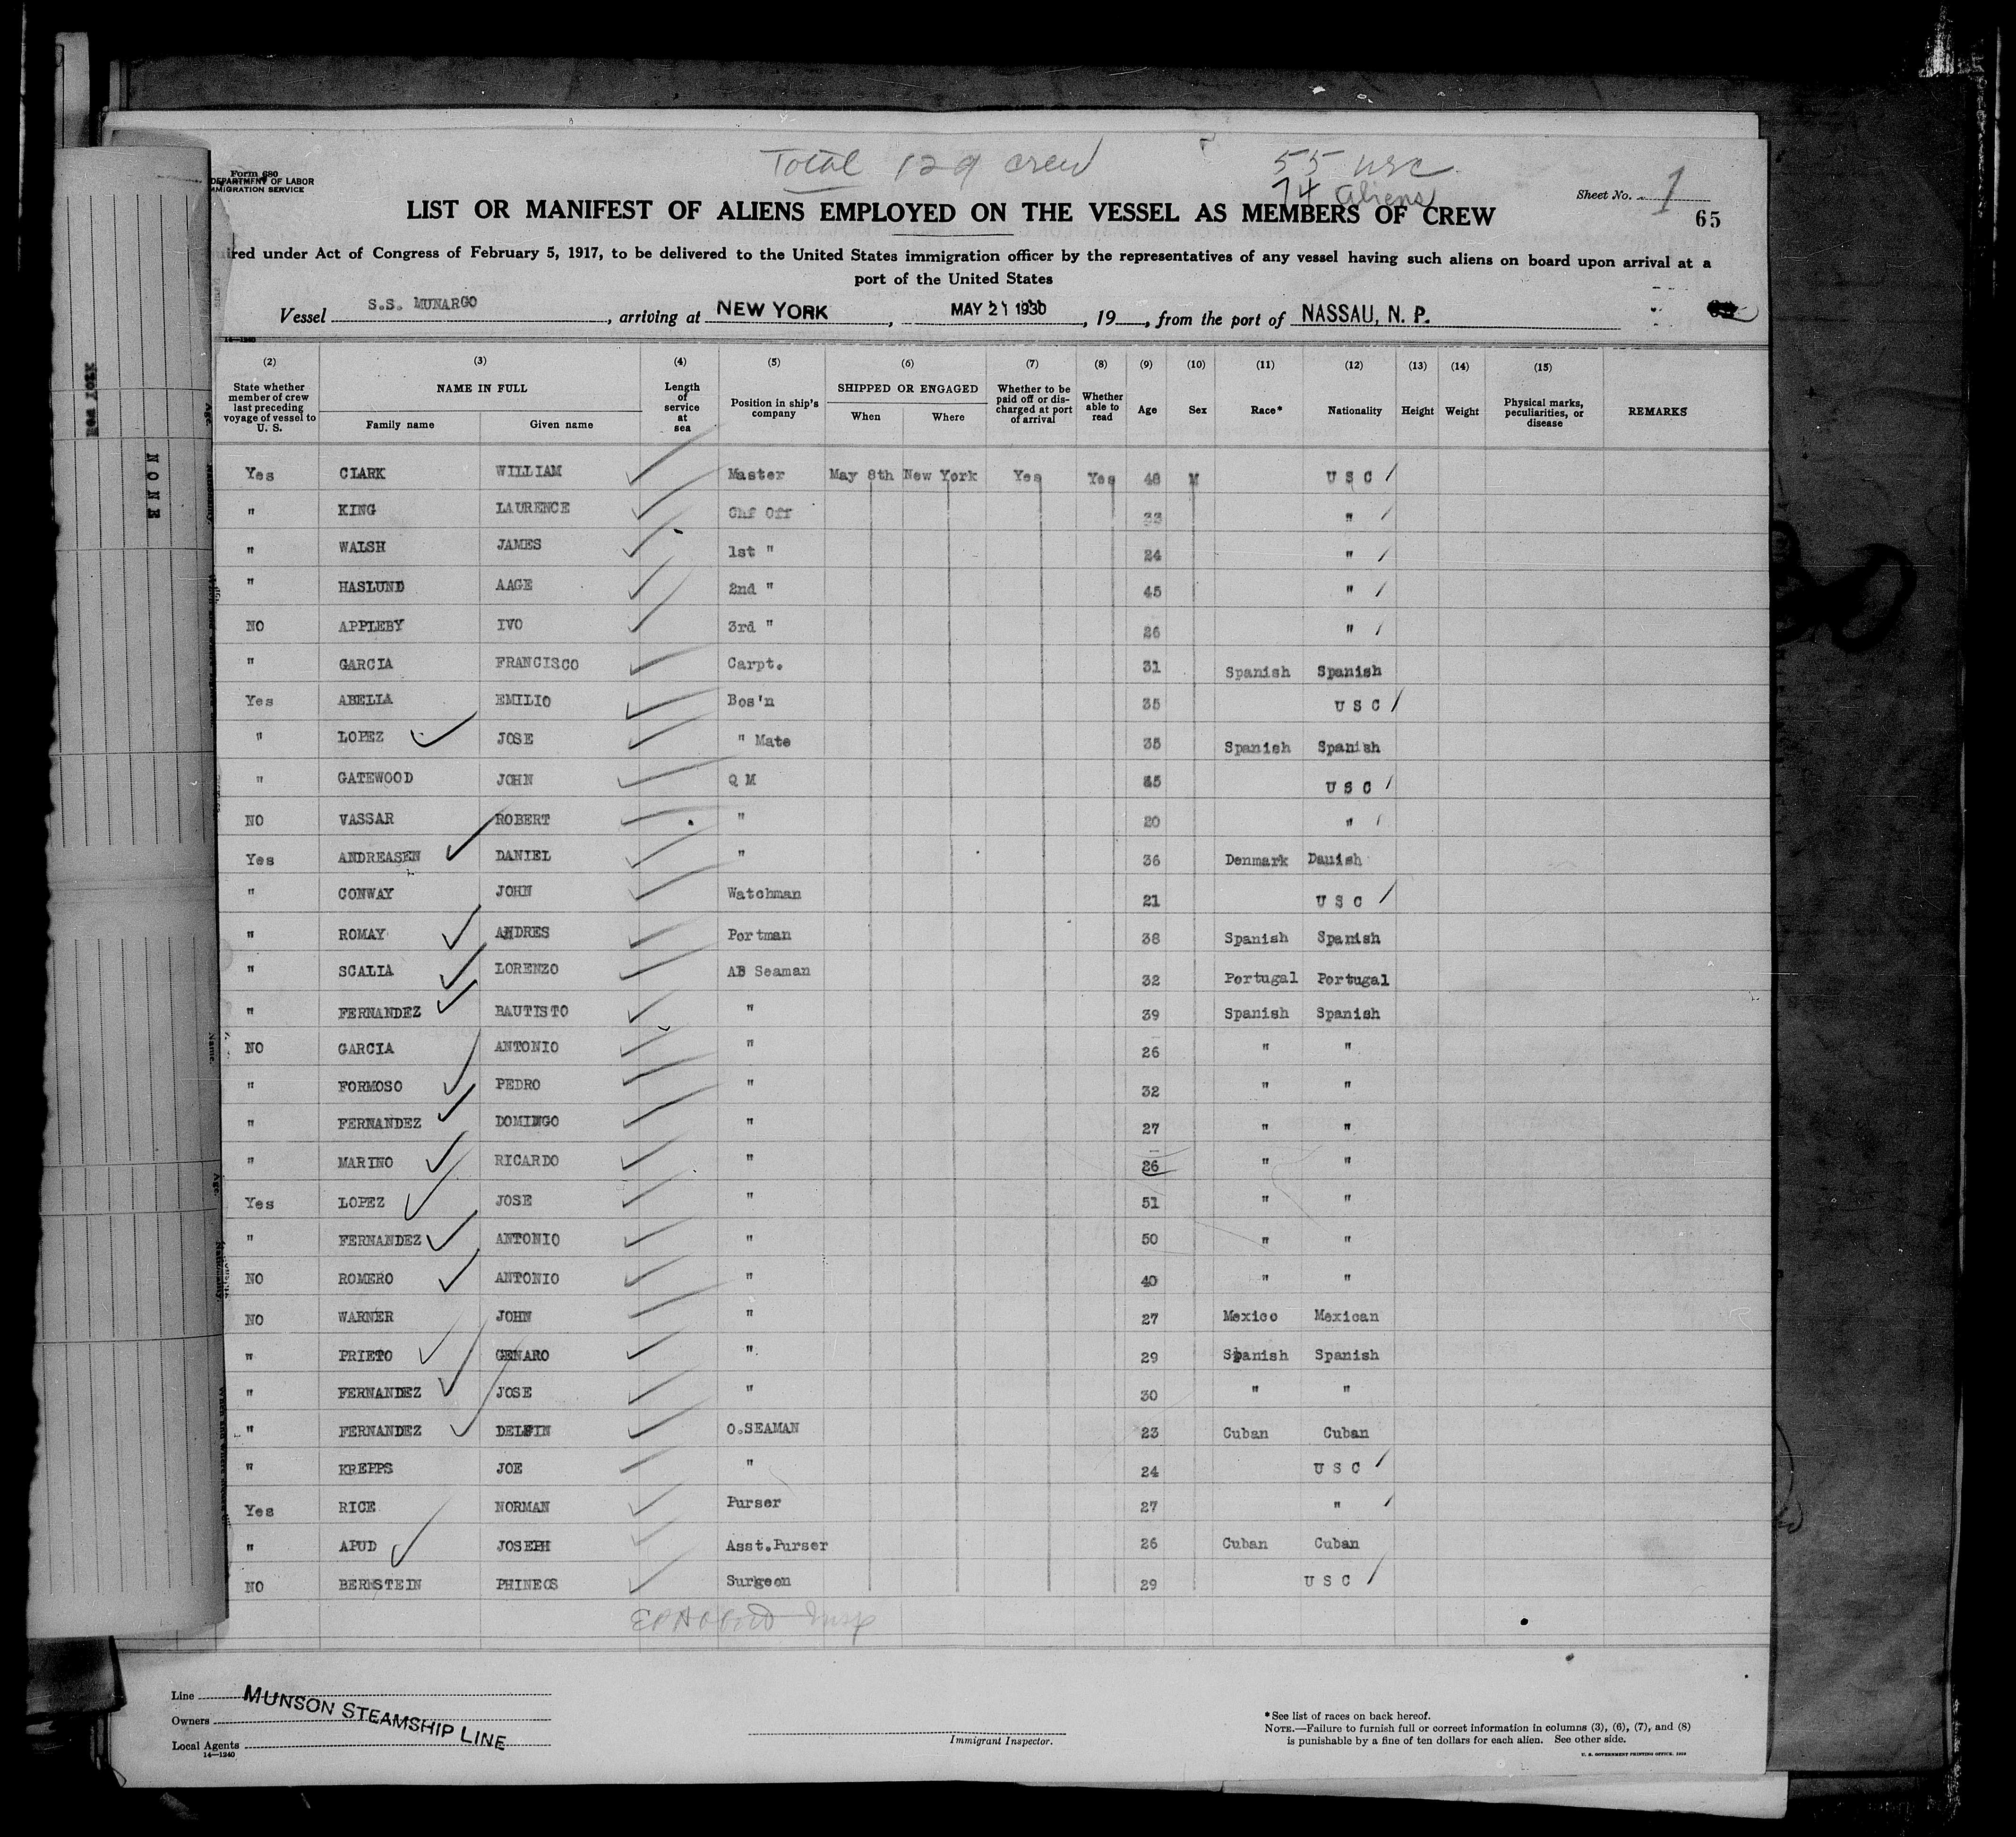 Total 129 crew 55 USC
74 Aliens
Form 680
DEPARTMENT OF LABOR
IMMIGRATION SERVICE
Sheet No. 1
65
LIST OR MANIFEST OF ALIENS EMPLOYED ON THE VESSEL AS MEMBERS OF CREW
uired under Act of Congress of February 5, 1917, to be delivered to the United States immigration officer by the representatives of any vessel having such aliens on board upon arrival at a
port of the United States
Vessel S.S. MUNARGO, arriving at NEW YORK, MAY 21 1930, 19__, from the port of NASSAU, N. P.
14—1240
(2) (3) (4) (5) (6) (7) (8) (9) (10) (11) (12) (13) (14) (15)
State whether member of crew last preceding voyage of vessel to U. S. | NAME IN FULL | Family name | Given name | Length of service at sea | Position in ship's company | SHIPPED OR ENGAGED | When | Where | Whether to be paid off or discharged at port of arrival | Whether able to read | Age | Sex | Race* | Nationality | Height | Weight | Physical marks, peculiarities, or disease | REMARKS
Yes CLARK WILLIAM Master May 8th New York Yes Yes 48 M U S C
" KING LAURENCE Chf Off 33 "
" WALSH JAMES 1st " 24 "
" HASLUND AAGE 2nd " 45 "
NO APPLEBY IVO 3rd " 26 "
" GARCIA FRANCISCO Carpt. 31 Spanish Spanish
Yes ABELLA EMILIO Bos'n 35 U S C
" LOPEZ JOSE " Mate 35 Spanish Spanish
" GATEWOOD JOHN Q M 45 U S C
NO VASSAR ROBERT " 20 "
Yes ANDREASEN DANIEL " 36 Denmark Danish
" CONWAY JOHN Watchman 21 U S C
" ROMAY ANDRES Portman 38 Spanish Spanish
" SCALIA LORENZO AB Seaman 32 Portugal Portugal
" FERNANDEZ BAUTISTO " 39 Spanish Spanish
NO GARCIA ANTONIO " 26 " "
" FORMOSO PEDRO " 32 " "
" FERNANDEZ DOMINGO " 27 " "
" MARINO RICARDO " 26 " "
Yes LOPEZ JOSE " 51 " "
" FERNANDEZ ANTONIO " 50 " "
NO ROMERO ANTONIO " 40 " "
NO WARNER JOHN " 27 Mexico Mexican
" PRIETO GENARO " 29 Spanish Spanish
" FERNANDEZ JOSE " 30 " "
" FERNANDEZ DELFIN O.SEAMAN 23 Cuban Cuban
" KREPPS JOE " 24 U S C
Yes RICE NORMAN Purser 27 "
" APUD JOSEPH Asst.Purser 26 Cuban Cuban
NO BERNSTEIN PHINEOS Surgeon 29 U S C
Line
Owners MUNSON STEAMSHIP LINE
Local Agents
14—1240
Immigrant Inspector.
*See list of races on back hereof.
NOTE.—Failure to furnish full or correct information in columns (3), (6), (7), and (8)
is punishable by a fine of ten dollars for each alien. See other side.
U. S. GOVERNMENT PRINTING OFFICE
NONE